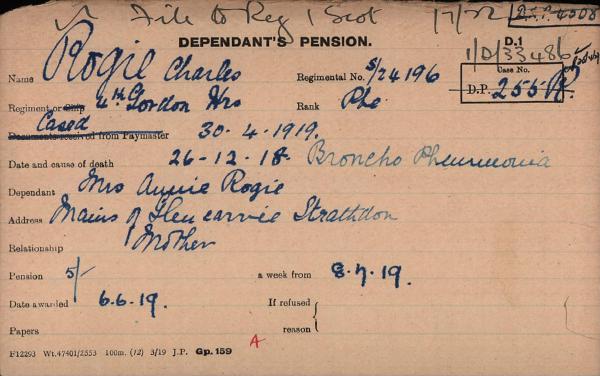 File to Reg 1 Scot 17/22 D.P. 4508
DEPENDANT'S PENSION.
D.1
1/D/33486
Name Rogie Charles Regimental No. S/24196
Case No.
D.P. 255
Regiment or Ship 4th Gordon Hrs Rank Pte
Cased
Documents received from Paymaster 30.4.1919.
Date and cause of death 26-12-18. Broncho Pneumonia
Dependant Mrs Annie Rogie
Address Mains of Glencarvie Strathdon
Relationship Mother
Pension 5/- a week from 8.7.19.
Date awarded 6.6.19. If refused
Papers reason
F12293 Wt.47401/2553 100m. (12) 3/19 J.P. Gp. 159
A